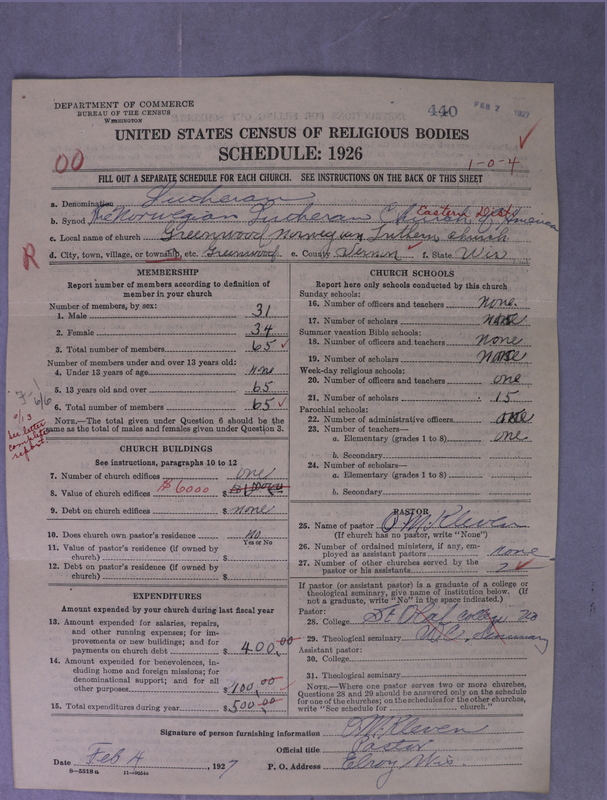 DEPARTMENT OF COMMERCE
BUREAU OF THE CENSUS
WASHINGTON
440
FEB 7 1927
UNITED STATES CENSUS OF RELIGIOUS BODIES
SCHEDULE: 1926
00
1-0-4
FILL OUT A SEPARATE SCHEDULE FOR EACH CHURCH. SEE INSTRUCTIONS ON THE BACK OF THIS SHEET
a. Denomination Lutheran
b. Synod The Norwegian Lutheran Church of America Eastern Dist.
c. Local name of church Greenwood Norwegian Luthern church
d. City, town, village, or township, etc. Greenwood e. County Vernon f. State Wis
R
MEMBERSHIP
Report number of members according to definition of
member in your church
Number of members, by sex:
1. Male 31
2. Female 34
3. Total number of members 65
Number of members under and over 13 years old:
4. Under 13 years of age none
5. 13 years old and over 65
6. Total number of members 65
NOTE.—The total given under Question 6 should be the
same as the total of males and females given under Question 3.
see letter
complete
report.
CHURCH BUILDINGS
See instructions, paragraphs 10 to 12
7. Number of church edifices one
8. Value of church edifices $6000 $
9. Debt on church edifices $ none
10. Does church own pastor's residence no
Yes or No
11. Value of pastor's residence (if owned by
church) $
12. Debt on pastor's residence (if owned by
church) $
EXPENDITURES
Amount expended by your church during last fiscal year
13. Amount expended for salaries, repairs,
and other running expenses; for im-
provements or new buildings; and for
payments on church debt $ 400.00
14. Amount expended for benevolences, in-
cluding home and foreign missions; for
denominational support; and for all
other purposes $ 100.00
15. Total expenditures during year $ 500.00
CHURCH SCHOOLS
Report here only schools conducted by this church
Sunday schools:
16. Number of officers and teachers none
17. Number of scholars none
Summer vacation Bible schools:
18. Number of officers and teachers none
19. Number of scholars none
Week-day religious schools:
20. Number of officers and teachers one
21. Number of scholars 15
Parochial schools:
22. Number of administrative officers one
23. Number of teachers—
a. Elementary (grades 1 to 8) one
b. Secondary
24. Number of scholars—
a. Elementary (grades 1 to 8)
b. Secondary
PASTOR
25. Name of pastor O M Kleven
(If church has no pastor, write "None")
26. Number of ordained ministers, if any, em-
ployed as assistant pastors none
27. Number of other churches served by the
pastor or his assistants 2
If pastor (or assistant pastor) is a graduate of a college or
theological seminary, give name of institution below. (If
not a graduate, write "No" in the space indicated.)
Pastor:
28. College St Olaf College
29. Theological seminary U.C. Seminary
Assistant pastor:
30. College
31. Theological seminary
NOTE.—Where one pastor serves two or more churches,
Questions 28 and 29 should be answered only on the schedule
for one of the churches; on the schedules for the other churches,
write "See schedule for church."
Signature of person furnishing information O M Kleven
Official title Pastor
Date Feb 4, 1927 P. O. Address Elroy Wis.
8—5518a